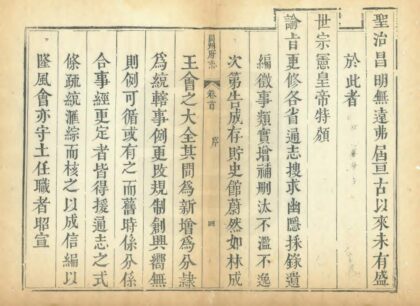 聖治昌明無遠弗屆亘古以來未有盛
於此者
世宗憲皇帝特頒
諭旨更修各省通志搜求幽隱採錄遺
編徵事類實增補刪汰不濫不逸
次第告成存貯史館蔚然如林成
州府志
卷首
序
四
王會之大全其間為新增為分隸
為統轄事例更改規制創興嚮無
則例可循或有之而舊時係分係
合事經更定者皆得援通志之式
條疏統滙綜而核之以成信編以
隆風會亦守土任職者昭宣